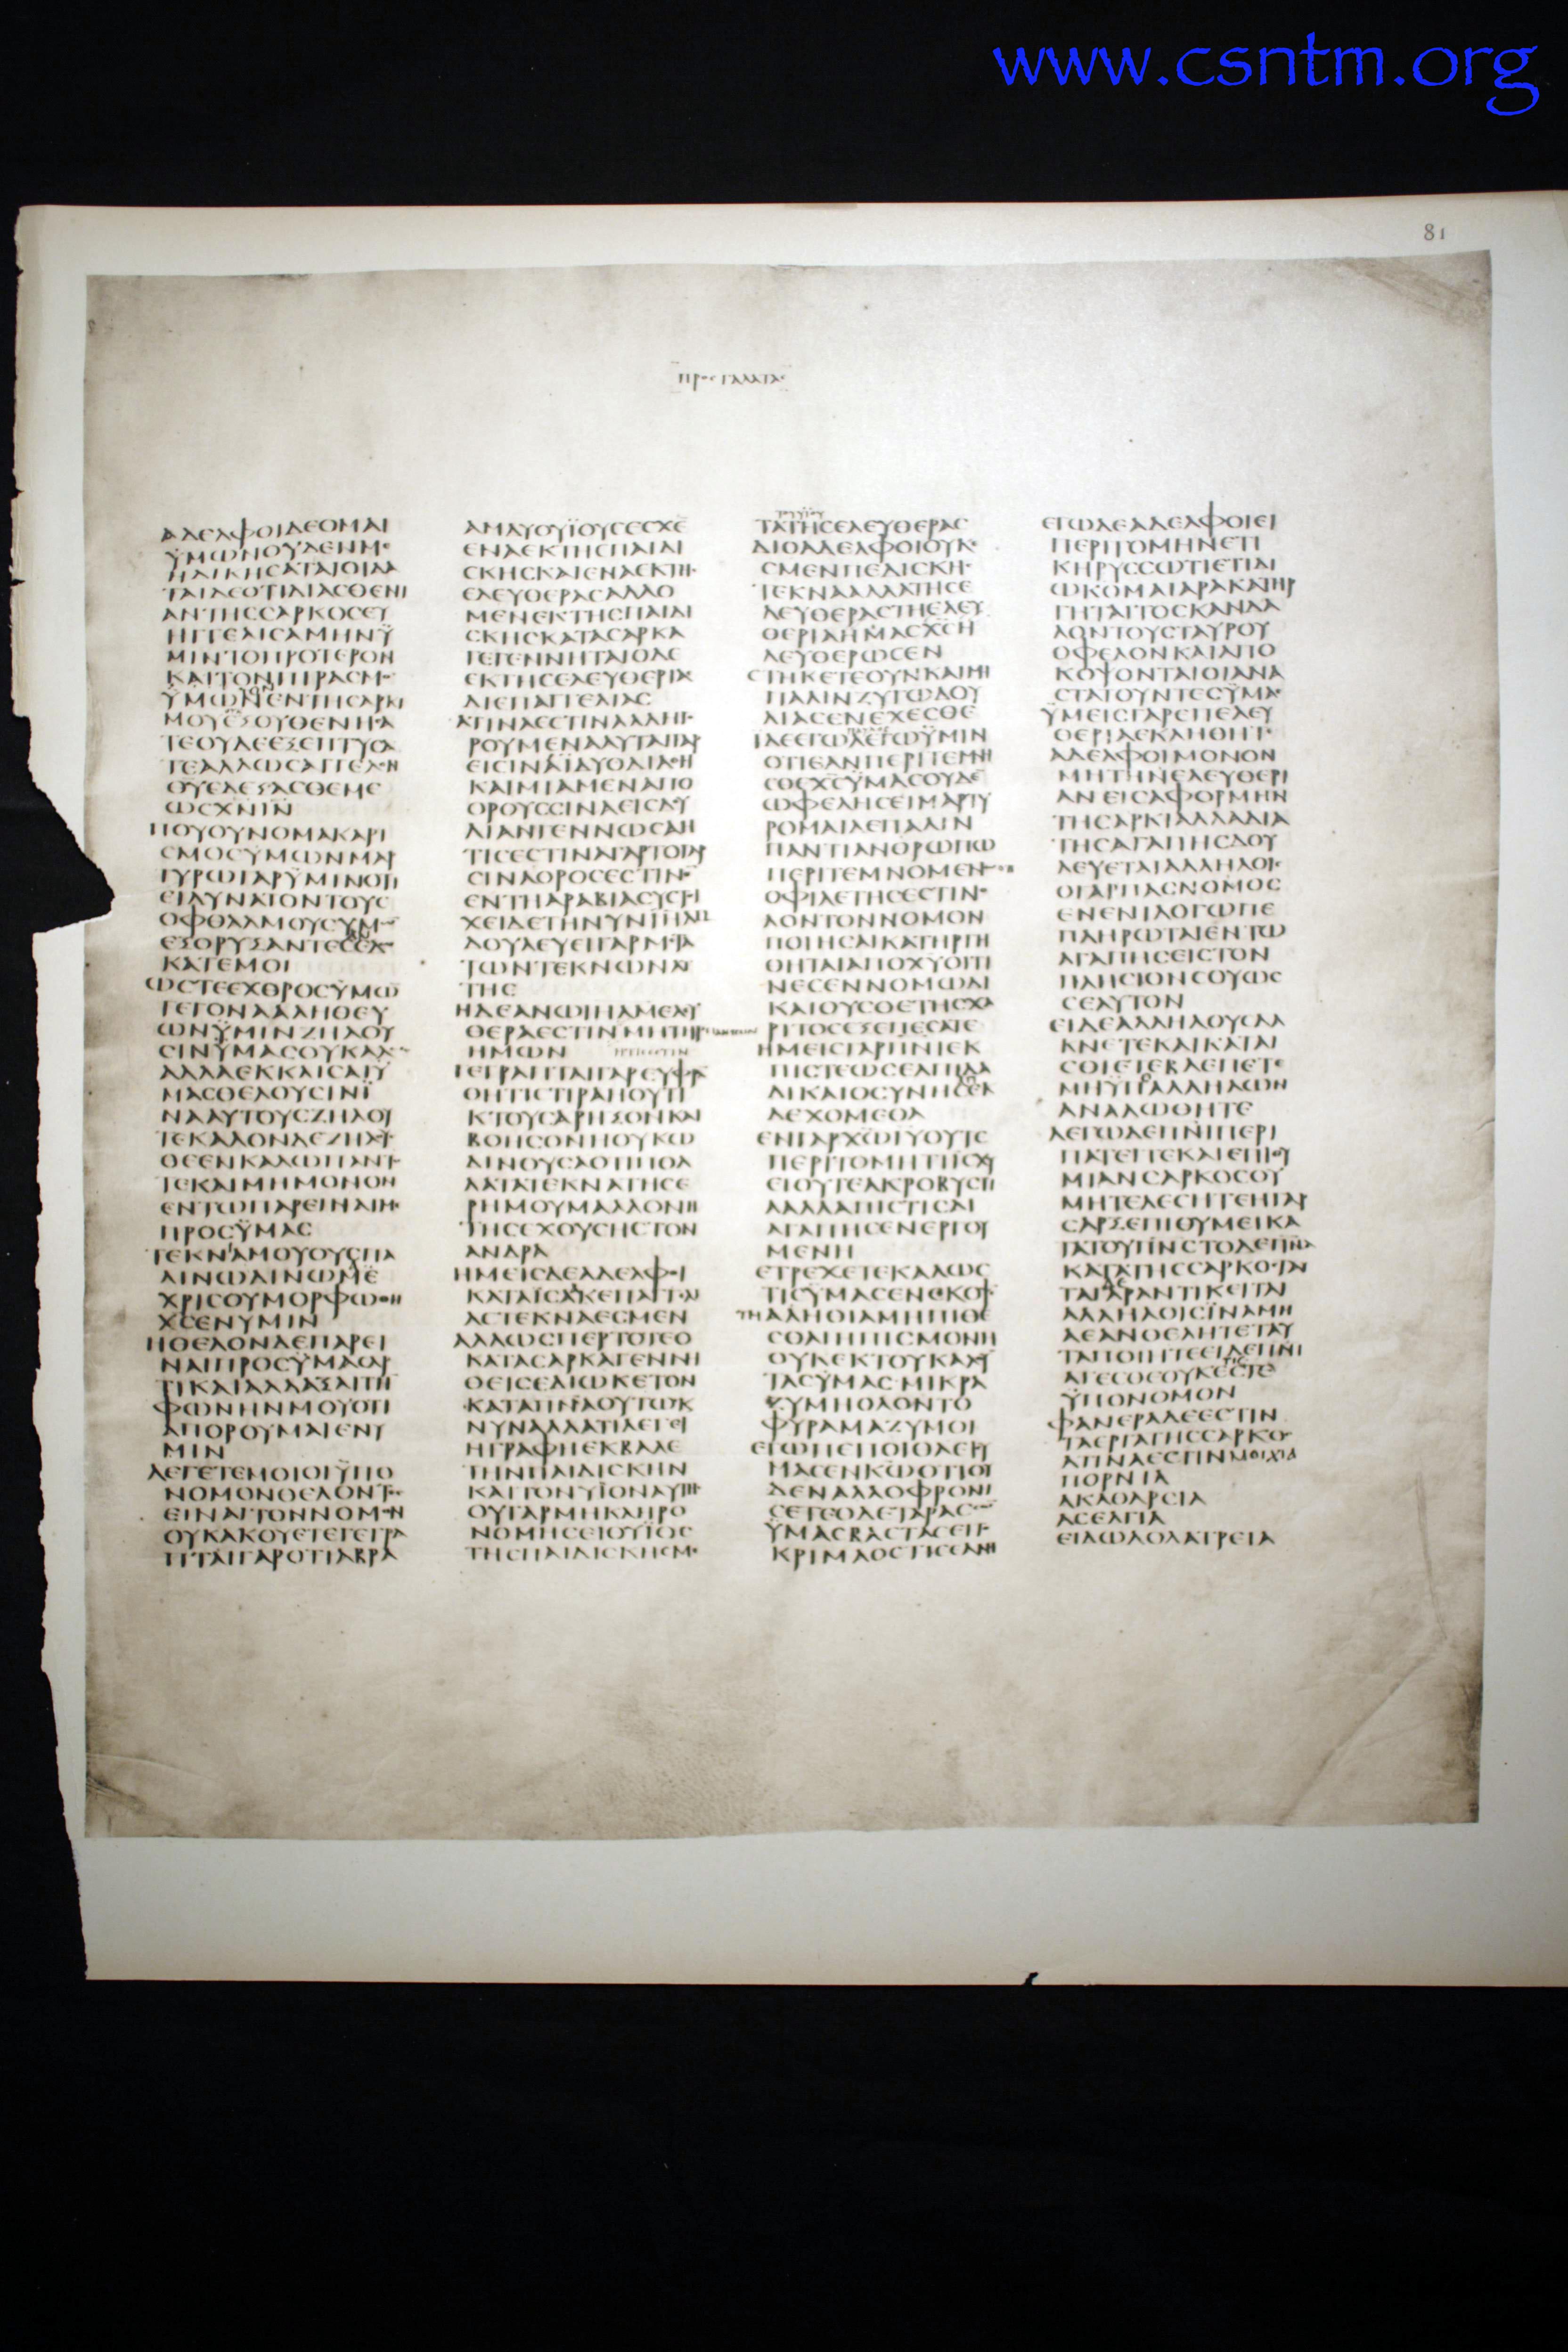 www.csntm.org
81
ΠΡΟϹ ΓΑΛΑΤΑϹ
ΑΔΕΛΦΟΙΔΕΟΜΑΙ
ΫΜΩΝΟΥΔΕΝΜΕ
ΗΔΙΚΗϹΑΤΑΙΟΙΔΑ
ΤΑΙΔΕΟΤΙΔΙΑϹΘΕΝΙ
ΑΝΤΗϹϹΑΡΚΟϹΕΥ
ΗΓΓΕΛΙϹΑΜΗΝΫ
ΜΙΝΤΟΠΡΟΤΕΡΟΝ
ΚΑΙΤΟΝΠΙΡΑϹΜΟ
ΫΜΩΝΕΝΤΗϹΑΡΚΙ
ΜΟΥΕΞΟΥΘΕΝΗϹΑ
ΤΕΟΥΔΕΕΞΕΠΤΥϹΑ
ΤΕΑΛΛΩϹΑΓΓΕΛΟΝ
ΘΥΕΔΕΞΑϹΘΕΜΕ
ΩϹΧΝΙΝ
ΠΟΥΟΥΝΟΜΑΚΑΡΙ
ϹΜΟϹΫΜΩΝΜΑΡ
ΤΥΡΩΓΑΡΫΜΙΝΟΤΙ
ΕΙΔΥΝΑΤΟΝΤΟΥϹ
ΟΦΘΑΛΜΟΥϹΫΜΩ
ΕΞΟΡΥΞΑΝΤΕϹΕΔΩ
ΚΑΤΕΜΟΙ
ΩϹΤΕΕΧΘΡΟϹΫΜΩ
ΓΕΓΟΝΑΑΛΗΘΕΥ
ΩΝΫΜΙΝΖΗΛΟΥ
ϹΙΝΫΜΑϹΟΥΚΑΛΩϹ
ΑΛΛΑΕΚΚΛΙϹΑΙΫ
ΜΑϹΘΕΛΟΥϹΙΝΪ
ΝΑΑΥΤΟΥϹΖΗΛΟΥ
ΤΕΚΑΛΟΝΔΕΖΗΛΟΥ
ϹΘΕΕΝΚΑΛΩΠΑΝΤΟ
ΤΕΚΑΙΜΗΜΟΝΟΝ
ΕΝΤΩΠΑΡΕΙΝΑΙΜΕ
ΠΡΟϹΫΜΑϹ
ΤΕΚΝΑΜΟΥΟΥϹΠΑ
ΛΙΝΩΔΙΝΩΜΕ
ΧΡΙϹΟΥΜΟΡΦΩΘΗ
ΧϹΕΝΥΜΙΝ
ΗΘΕΛΟΝΔΕΠΑΡΕΙ
ΝΑΙΠΡΟϹΫΜΑϹΑΡ
ΤΙΚΑΙΑΛΛΑΞΑΙΤΗ
ΦΩΝΗΝΜΟΥΟΤΙ
ΑΠΟΡΟΥΜΑΙΕΝΥ
ΜΙΝ
ΛΕΓΕΤΕΜΟΙΟΙΫΠΟ
ΝΟΜΟΝΘΕΛΟΝΤΕϹ
ΕΙΝΑΙΤΟΝΝΟΜΟΝ
ΟΥΚΑΚΟΥΕΤΕΓΕΓΡΑ
ΠΤΑΙΓΑΡΟΤΙΑΒΡΑ
ΑΜΔΥΟΥΪΟΥϹΕϹΧΕ
ΕΝΑΕΚΤΗϹΠΑΙΔΙ
ϹΚΗϹΚΑΙΕΝΑΕΚΤΗϹ
ΕΛΕΥΘΕΡΑϹΑΛΛΟ
ΜΕΝΕΚΤΗϹΠΑΙΔΙ
ϹΚΗϹΚΑΤΑϹΑΡΚΑ
ΓΕΓΕΝΝΗΤΑΙΟΔΕ
ΕΚΤΗϹΕΛΕΥΘΕΡΙΑϹ
ΔΙΕΠΑΓΓΕΛΙΑϹ
ΑΤΙΝΑΕϹΤΙΝΑΛΛΗΓΟ
ΡΟΥΜΕΝΑΑΥΤΑΙΓΑΡ
ΕΙϹΙΝΑΪΔΥΟΔΙΑΘΗ
ΚΑΙΜΙΑΜΕΝΑΠΟ
ΟΡΟΥϹϹΙΝΑΕΙϹΔΟΥ
ΛΙΑΝΓΕΝΝΩϹΑΗ
ΤΙϹΕϹΤΙΝΑΓΑΡΤΟΓΑΡ
ϹΙΝΑΟΡΟϹΕϹΤΙΝ
ΕΝΤΗΑΡΑΒΙΑϹΥϹΤΟΙ
ΧΕΙΔΕΤΗΝΥΝΪΗΛΜ
ΔΟΥΛΕΥΕΙΓΑΡΜΕΤΑ
ΤΩΝΤΕΚΝΩΝΑΥ
ΤΗϹ
ΗΔΕΑΝΩΪΗΛΜΕΛΕΥ
ΘΕΡΑΕϹΤΙΝΗΤΙϹ
ΗΜΩΝ
ΓΕΓΡΑΠΤΑΙΓΑΡΕΥΦΡΑ
ΘΗΤΙϹΤΙΡΑΗΟΥΤΙ
ΚΤΟΥϹΑΡΗΞΟΝΚΑΙ
ΒΟΗϹΟΝΗΟΥΚΩ
ΔΙΝΟΥϹΑΟΤΙΠΟΛ
ΛΑΤΑΤΕΚΝΑΤΗϹΕ
ΡΗΜΟΥΜΑΛΛΟΝΗ
ΤΗϹΕΧΟΥϹΗϹΤΟΝ
ΑΝΔΡΑ
ΗΜΕΙϹΔΕΑΔΕΛΦΟΙ
ΚΑΤΑΪϹΑΚΕΠΑΓΓΕΛΙ
ΑϹΤΕΚΝΑΕϹΜΕΝ
ΑΛΛΩϹΠΕΡΤΟΤΕΟ
ΚΑΤΑϹΑΡΚΑΓΕΝΝΗ
ΘΕΙϹΕΔΙΩΚΕΤΟΝ
ΚΑΤΑΠΝΑΟΥΤΩΚ
ΝΥΝΑΛΛΑΤΙΛΕΓΕΙ
ΗΓΡΑΦΗΕΚΒΑΛΕ
ΤΗΝΠΑΙΔΙϹΚΗΝ
ΚΑΙΤΟΝΥΪΟΝΑΥΤΗϹ
ΟΥΓΑΡΜΗΚΛΗΡΟ
ΝΟΜΗϹΕΙΟΥΪΟϹ
ΤΗϹΠΑΙΔΙϹΚΗϹΜΕ
ΤΑΤΗϹΕΛΕΥΘΕΡΑϹ
ΔΙΟΑΔΕΛΦΟΙΟΥΚΕ
ϹΜΕΝΠΕΔΙϹΚΗϹ
ΤΕΚΝΑΑΛΛΑΤΗϹΕ
ΛΕΥΘΕΡΑϹΤΗΕΛΕΥ
ΘΕΡΙΑΗΜΑϹΧϹΗ
ΛΕΥΘΕΡΩϹΕΝ
ϹΤΗΚΕΤΕΟΥΝΚΑΙΜΗ
ΠΑΛΙΝΖΥΓΩΔΟΥ
ΛΙΑϹΕΝΕΧΕϹΘΕ
ΙΔΕΕΓΩΛΕΓΩΫΜΙΝ
ΟΤΙΕΑΝΠΕΡΙΤΕΜΝΗ
ϹΘΕΧϹΫΜΑϹΟΥΔΕ
ΩΦΕΛΗϹΕΙΜΑΡΤΥ
ΡΟΜΑΙΔΕΠΑΛΙΝ
ΠΑΝΤΙΑΝΘΡΩΠΩ
ΠΕΡΙΤΕΜΝΟΜΕΝΩ
ΟΦΙΛΕΤΗϹΕϹΤΙΝ
ΛΟΝΤΟΝΝΟΜΟΝ
ΠΟΙΗϹΑΙΚΑΤΗΡΓΗ
ΘΗΤΑΙΑΠΟΧΥΟΙΤΙ
ΝΕϹΕΝΝΟΜΩΔΙ
ΚΑΙΟΥϹΘΕΤΗϹΧΑ
ΡΙΤΟϹΕΞΕΠΕϹΑΤΕ
ΗΜΕΙϹΓΑΡΠΝΙΕΚ
ΠΙϹΤΕΩϹΕΛΠΙΔΑ
ΔΙΚΑΙΟϹΥΝΗϹΕΚ
ΔΕΧΟΜΕΘΑ
ΕΝΓΑΡΧΩΙΥΟΥΤΕ
ΠΕΡΙΤΟΜΗΤΙΪϹΧΥ
ΕΙΟΥΤΕΑΚΡΟΒΥϹΤΙ
ΑΛΛΑΠΙϹΤΙϹΔΙ
ΑΓΑΠΗϹΕΝΕΡΓΟΥ
ΜΕΝΗ
ΕΤΡΕΧΕΤΕΚΑΛΩϹ
ΤΙϹΫΜΑϹΕΝΕΚΟΨΕ
ΤΗΑΛΗΘΙΑΜΗΠΙΘΕ
ϹΘΑΙΗΠΙϹΜΟΝΗ
ΟΥΚΕΚΤΟΥΚΑΛΟΥ
ΤΟϹΫΜΑϹΜΙΚΡΑ
ΖΥΜΗΟΛΟΝΤΟ
ΦΥΡΑΜΑΖΥΜΟΙ
ΕΓΩΠΕΠΟΙΘΑΕΙϹΥ
ΜΑϹΕΝΚΩΟΤΙΟΥ
ΔΕΝΑΛΛΟΦΡΟΝΗ
ϹΕΤΕΟΔΕΤΑΡΑϹϹΩ
ΫΜΑϹΒΑϹΤΑϹΕΙΤΟ
ΚΡΙΜΑΟϹΤΙϹΕΑΝΗ
ΕΓΩΔΕΑΔΕΛΦΟΙΕΙ
ΠΕΡΙΤΟΜΗΝΕΤΙ
ΚΗΡΥϹϹΩΤΙΕΤΙΔΙ
ΩΚΟΜΑΙΑΡΑΚΑΤΗΡ
ΓΗΤΑΙΤΟϹΚΑΝΔΑ
ΛΟΝΤΟΥϹΤΑΥΡΟΥ
ΟΦΕΛΟΝΚΑΙΑΠΟ
ΚΟΨΟΝΤΑΙΟΙΑΝΑ
ϹΤΑΤΟΥΝΤΕϹΥΜΑϹ
ΫΜΕΙϹΓΑΡΕΠΕΛΕΥ
ΘΕΡΙΑΕΚΛΗΘΗΤΕ
ΑΔΕΛΦΟΙΜΟΝΟΝ
ΜΗΤΗΝΕΛΕΥΘΕΡΙ
ΑΝΕΙϹΑΦΟΡΜΗΝ
ΤΗϹΑΡΚΙΑΛΛΑΔΙΑ
ΤΗϹΑΓΑΠΗϹΔΟΥ
ΛΕΥΕΤΑΙΑΛΛΗΛΟΙϹ
ΟΓΑΡΠΑϹΝΟΜΟϹ
ΕΝΕΝΙΛΟΓΩΠΕ
ΠΛΗΡΩΤΑΙΕΝΤΩ
ΑΓΑΠΗϹΕΙϹΤΟΝ
ΠΛΗϹΙΟΝϹΟΥΩϹ
ϹΕΑΥΤΟΝ
ΕΙΔΕΑΛΛΗΛΟΥϹΔΑ
ΚΝΕΤΕΚΑΙΚΑΤΑΙ
ϹΘΙΕΤΕΒΛΕΠΕΤΕ
ΜΗΫΠΑΛΛΗΛΩΝ
ΑΝΑΛΩΘΗΤΕ
ΛΕΓΩΔΕΠΝΙΠΕΡΙ
ΠΑΤΕΙΤΕΚΑΙΕΠΙΘΥ
ΜΙΑΝϹΑΡΚΟϹΟΥ
ΜΗΤΕΛΕϹΗΤΕΗΓΑΡ
ϹΑΡΞΕΠΙΘΥΜΕΙΚΑ
ΤΑΤΟΥΠΝϹΤΟΔΕΠΝΑ
ΚΑΤΑΤΗϹϹΑΡΚΟϹΤΑΥ
ΤΑΓΑΡΑΝΤΙΚΕΙΤΑΙ
ΑΛΛΗΛΟΙϹΪΝΑΜΗ
ΑΕΑΝΘΕΛΗΤΕΤΑΥ
ΤΑΠΟΙΗΤΕΕΙΔΕΠΝΙ
ΑΓΕϹΘΕΟΥΚΕϹΤΕ
ΫΠΟΝΟΜΟΝ
ΦΑΝΕΡΑΔΕΕϹΤΙΝ
ΤΑΕΡΓΑΤΗϹϹΑΡΚΟϹ
ΑΤΙΝΑΕϹΤΙΝΜΟΙΧΙΑ
ΠΟΡΝΙΑ
ΑΚΑΘΑΡϹΙΑ
ΑϹΕΛΓΙΑ
ΕΙΔΩΛΟΛΑΤΡΕΙΑ